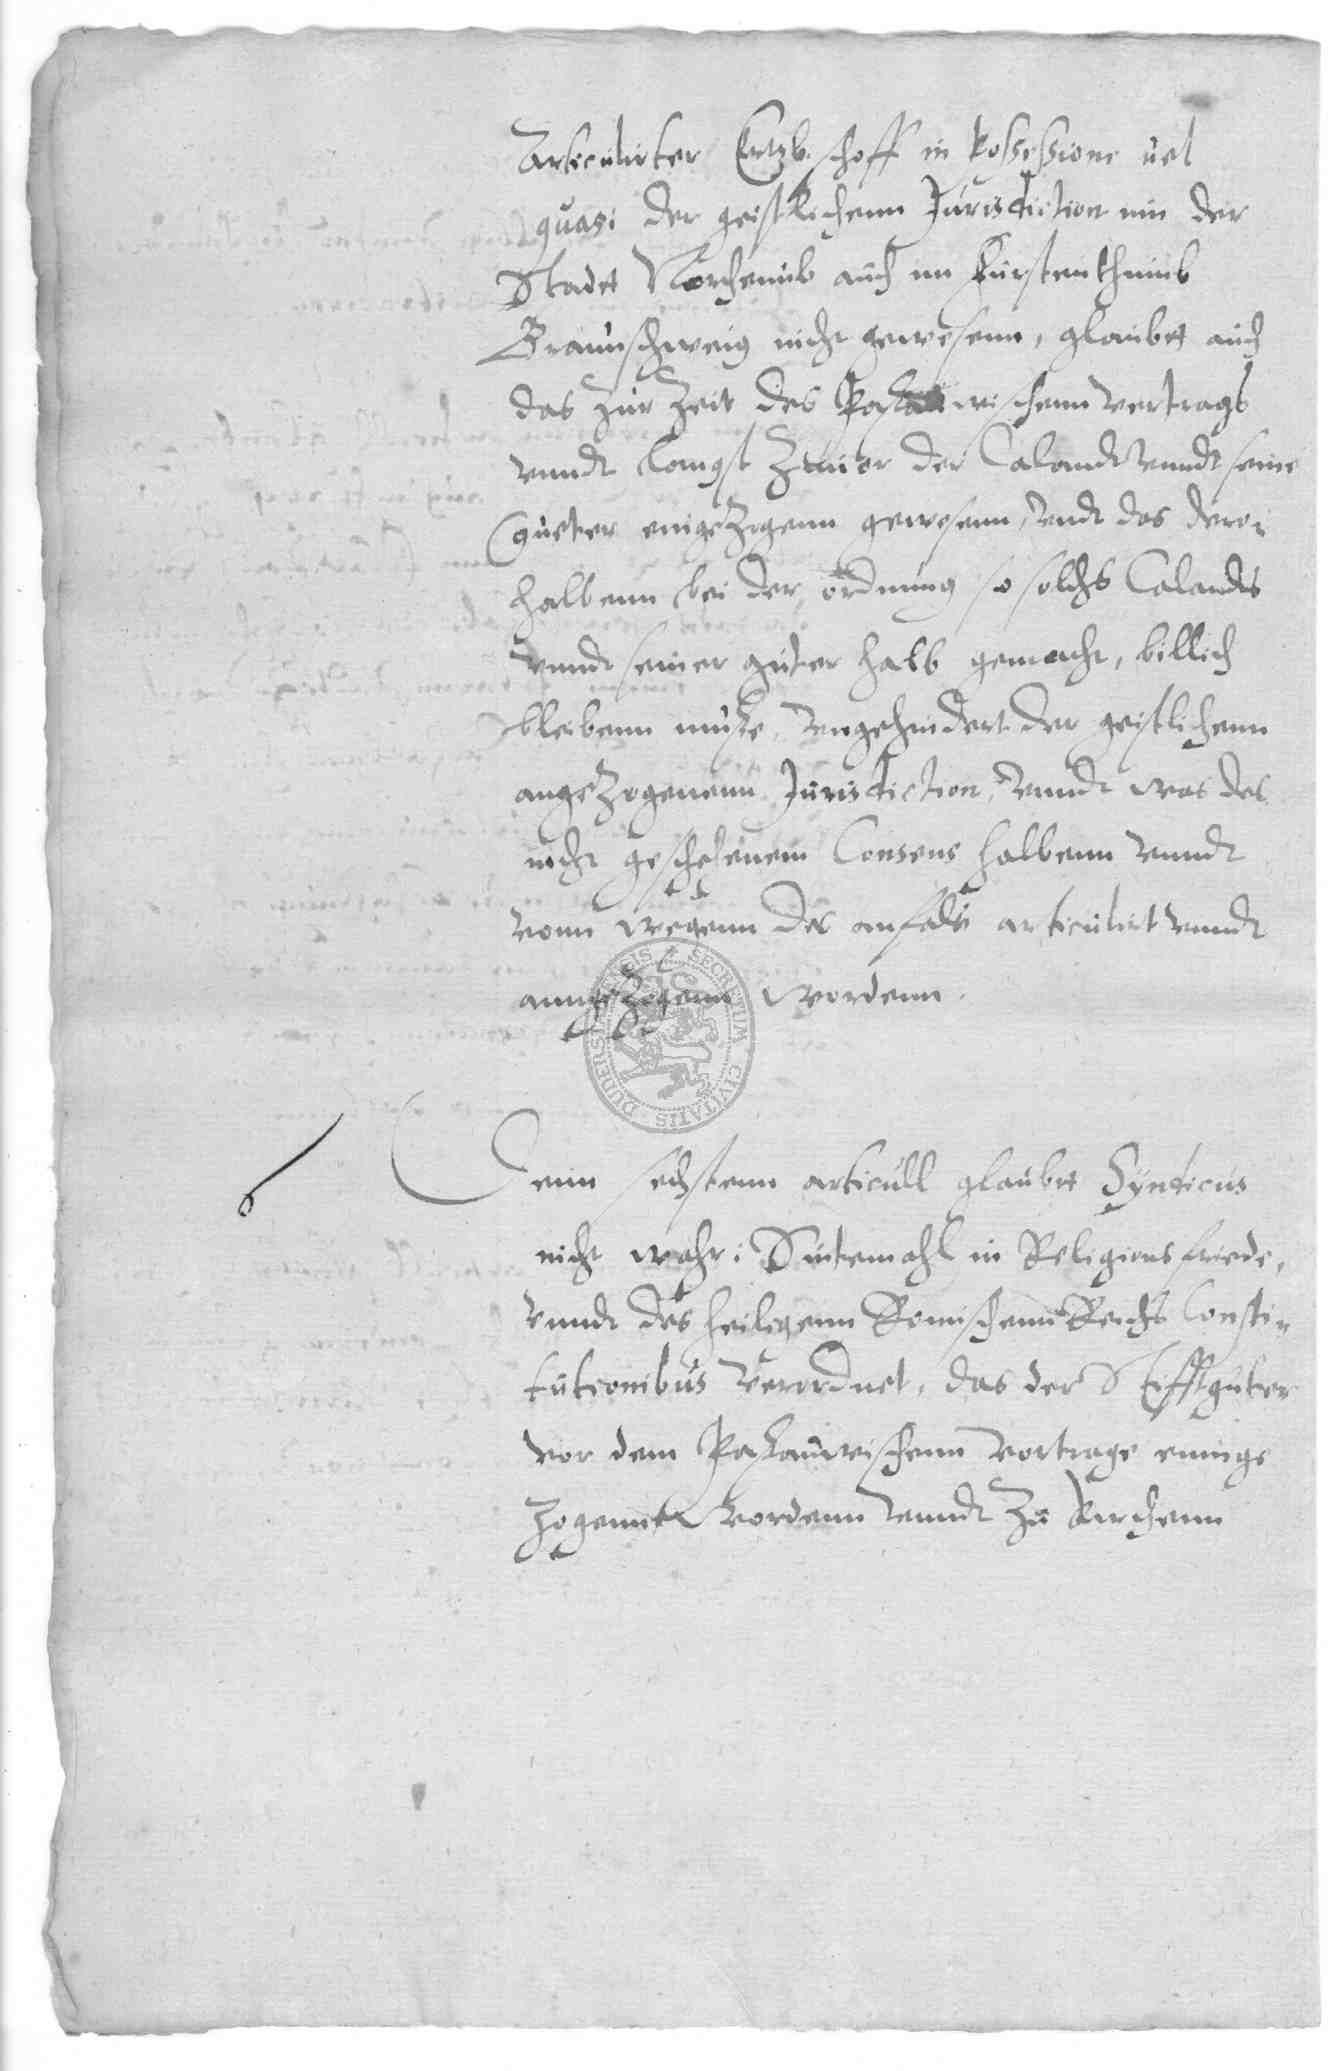 Articulirter Ertzbischoff in Possessione uel
quasi der geistlichenn Jurisdiction inn der
Stadtt Northeimb auch im Fürstenthumb
Braunschweig nicht gewesenn, glaubtt auch
das zur Zeit des Passawischenn vertrags
vnndt langst zuuor der Calandt vnndt seine
Gueter eingezogenn gewesenn, vndt das dero¬
halbenn bei der ordnung so solchs Calandts
vnndt seiner guter halb gemacht, billich
bleibenn muße, vngehindert der geistlichenn
angezogenenn Jurisdiction, vnndt was des
nicht geschehenem Consens halbenn vnndt
vonn wegenn des anfals articulirt vnndt
anngezogenn wordenn.
DUDERSTADENSIS SECRETUM CIVITATIS
6
Denn sechstenn articull glaubtt Syndicus
nicht wahr: Sintemahl in Religions friede,
vnndt des heiligenn Romischenn Reichs Consti¬
tutionibus verordnet, das der Stifftguter
vor dem Passauwischenn vortrage einnge
zogenn wordenn vnndt zu Kirchenn